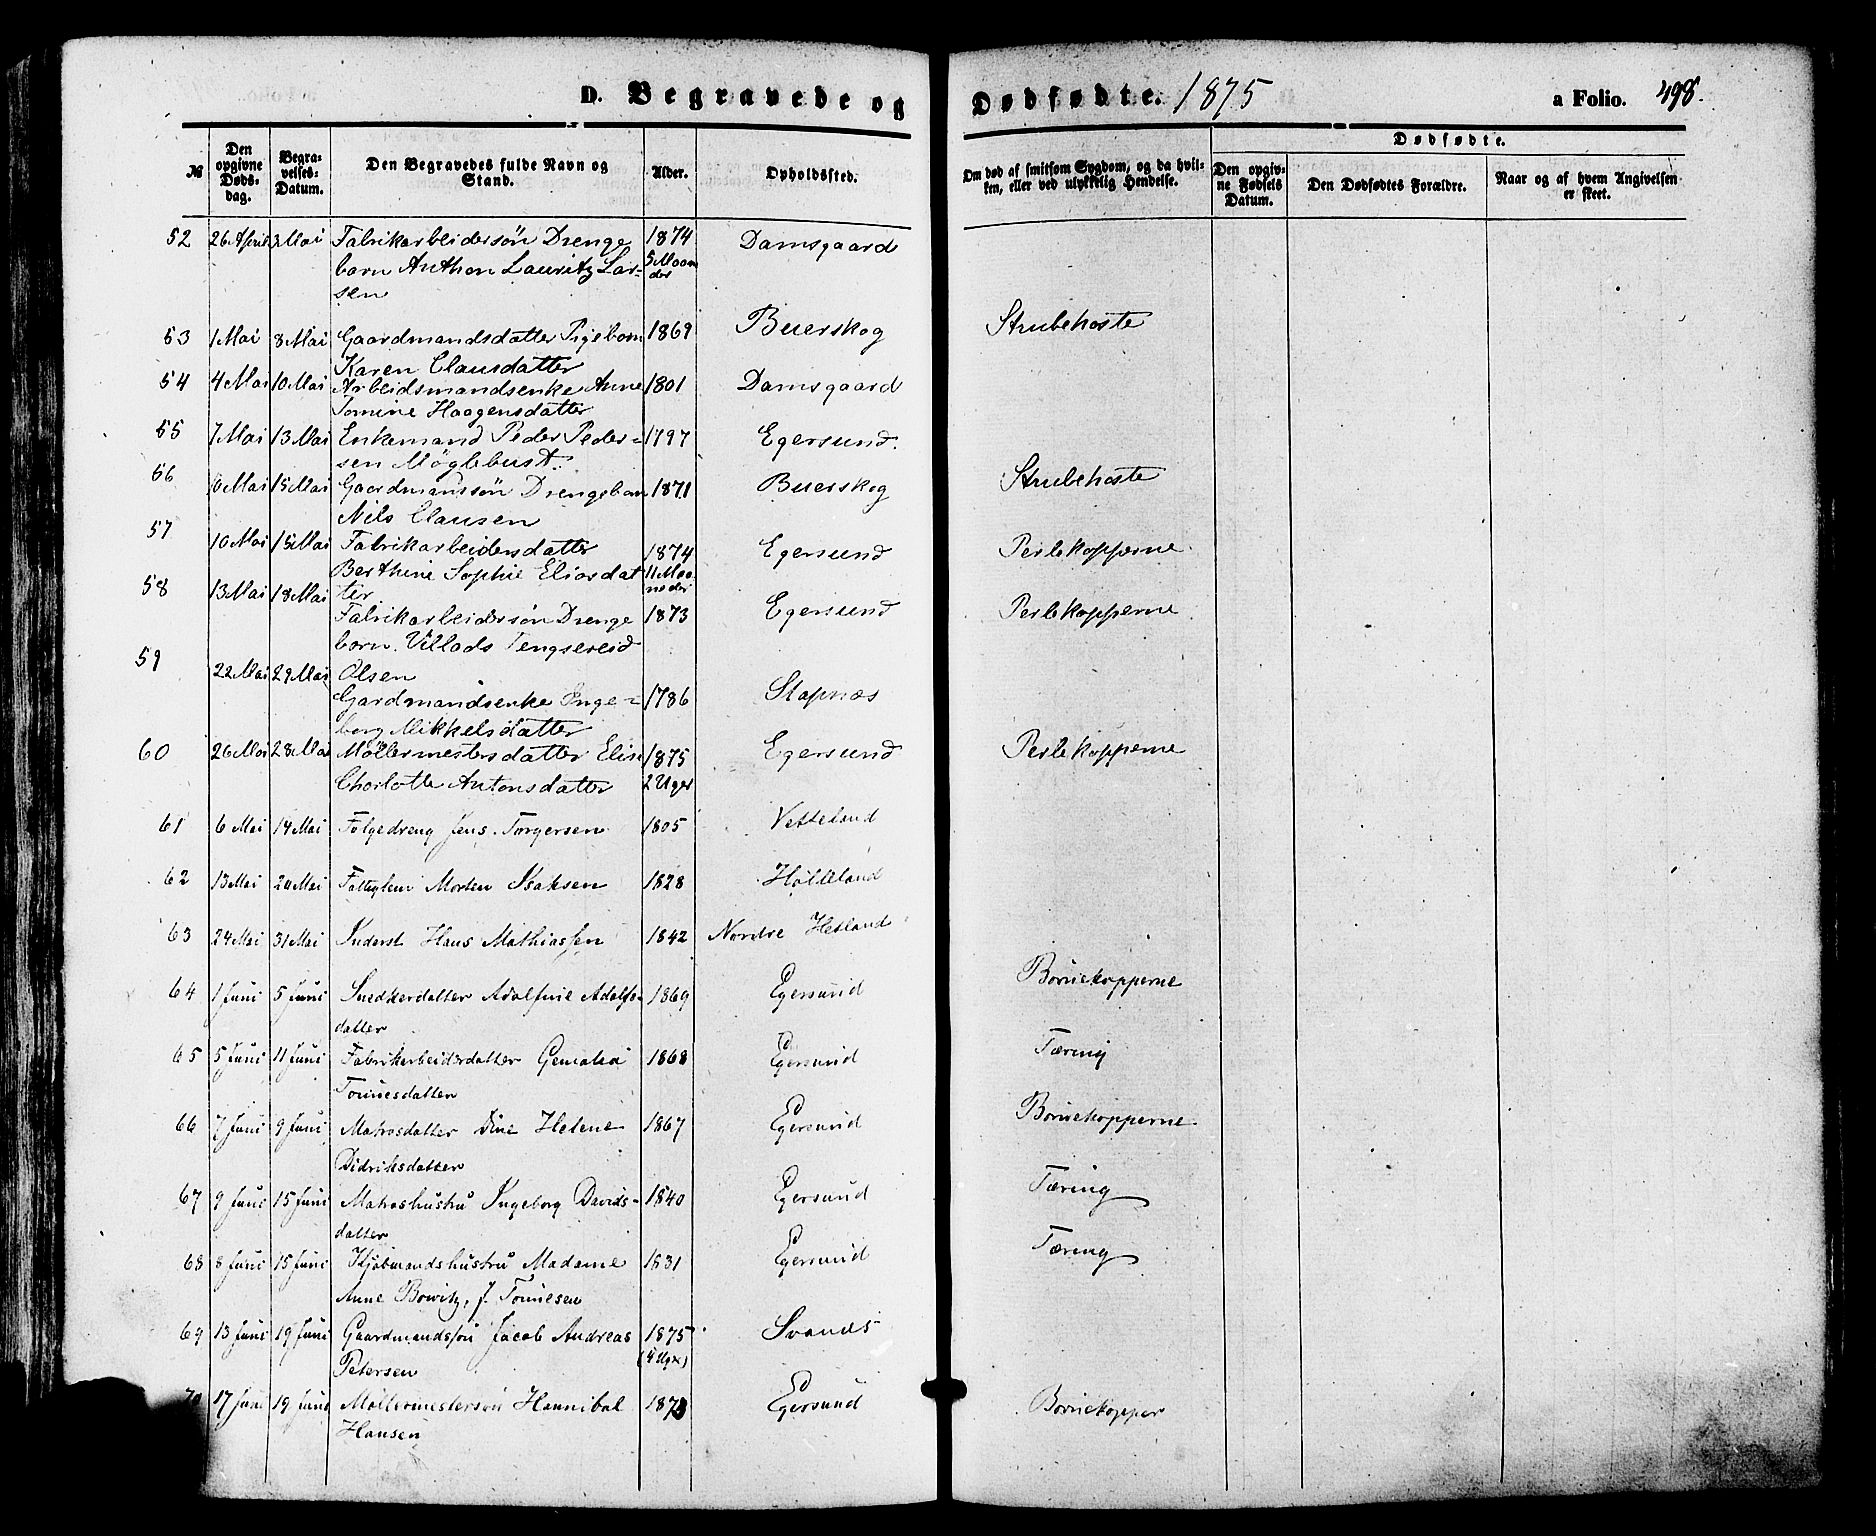 D. Begravede og Dødfødte. 1875 a Folio. 498.
№ Den opgivne Døds-dag. Begra-velses-Datum. Den Begravedes fulde Navn og Stand. Alder. Opholdssted. Om død af smitsom Sygdom, og da hvil-ken, eller ved ulykkelig Hendelse. Dødfødte. Den opgiv-ne Fødsels Datum. Den Dødfødtes Forældre. Naar og af hvem Angivelsen er skeet.
52 26 April 3 Mai Fabrikarbeidersøn Drenge 1874 Damsgaard
barn Anthon Lauritz Lar- 5 Maan
sen der
53 1 Mai 8 Mai Gaardmandsdatter Pigebarn 1869 Buerskog Strubehoste
Karen Clausdatter
54 4 Mai 10 Mai Arbeidsmandsenke Anne 1801 Damsgaard
Tomine Haagensdatter
55 7 Mai 13 Mai Enkemand Peder Peder- 1797 Egersund.
sen Møglebust.
56 6 Mai 15 Mai Gaardmanssøn Drengebarn 1871 Buerskog Strubehoste
Nils Clausen
57 10 Mai 15 Mai Fabrikarbeidersdatter 1874 Egersund Perlekopperne.
Berthine Sophie Eliasdat 11 Maa
ter neder
58 13 Mai 18 Mai Fabrikarbeidersøn Drenge 1873 Egersund Perlekopperne
barn. Villads Tengsereid
Olsen
59 22 Mai 29 Mai Gardmandsenke Inge- 1786 Stapnæs
borg Mikkelsdatter
60 26 Mai 28 Mai Møllermestersdatter Elise 1875 Egersund Perlekopperne
Charlotte Antonsdatter 2 Uger
61 6 Mai 14 Mai Følgedreng Jens Torgersen 1805 Vetteland
62 13 Mai 20 Mai Fatteglem Morten Isaksen 1828 Hølleland
63 24 Mai 31 Mai Inderst Hans Mathiassen 1842 Nordre Hetland
64 1 Juni 5 Juni Snedkerdatter Adolfine Adolfs- 1869 Egersund Børnekopperne
datter
65 5 Juni 11 Juni Fabrikarbeiderdatter 1868 Egersund Tæring
Tønnesdatter
66 7 Juni 9 Juni Matrosdatter Dine Helene 1867 Egersund Børnekopperne.
Didriksdatter
67 9 Juni 15 Juni Matroshustru Ingeborg Davids- 1840 Egersund Tæring
datter
68 8 Juni 15 Juni Kjøbmandshustru Madame 1831 Egersund Tæring
Anne Bowitz, f. Tønnesen
69 13 Juni 19 Juni Gaardmandssøn Jacob Andreas 1875 Svanæs
Petersen (4 Ugr)
70 17 Juni 19 Juni Møllermestersøn Hannibal 1873 Egersund Børnekopper
Hansen